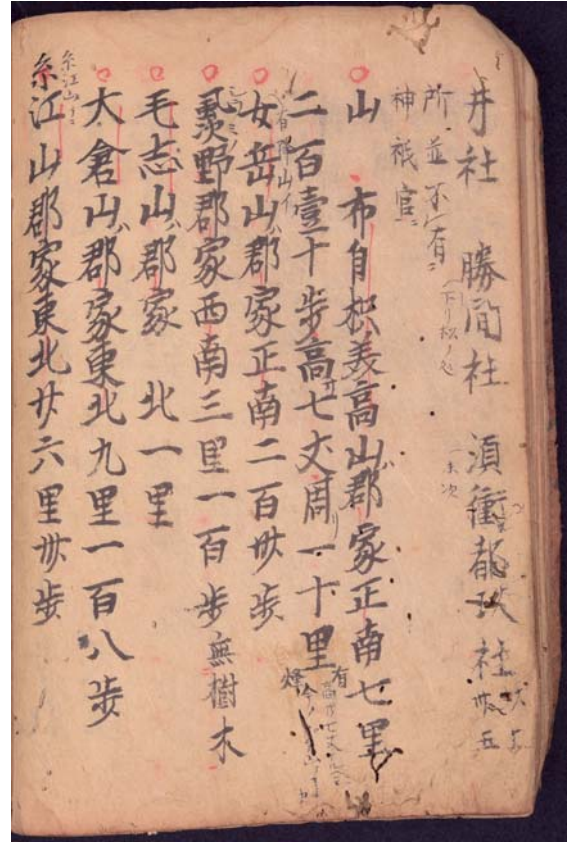 井社　勝間社　須衝都玖社　卅五
所並不有
神祇官
山　布自枳美高山郡家正南七里
二百壹十歩高七丈周一十里　有烽
女岳山郡家正南二百卅歩
野郡家西南三里一百歩無樹木
毛志山郡家　北一里
大倉山郡家東北九里一百八歩
糸江山
糸江山郡家東北廿六里卅歩